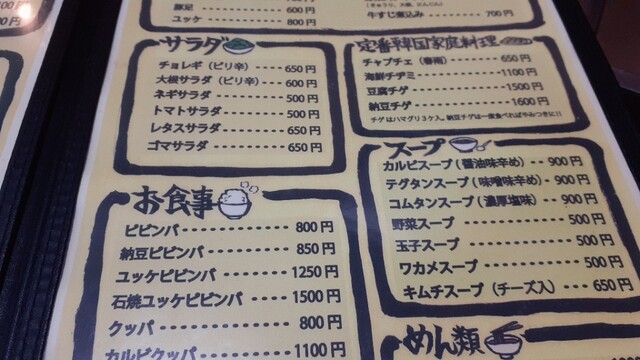 豚足 ・・・・・・ 600円
ユッケ ・・・・・・ 800円
牛すじ煮込み ・・・・・・ 700円
サラダ
チョレギ（ピリ辛） ・・・・ 650円
大根サラダ（ピリ辛） ・・ 600円
ネギサラダ ・・・・・・・ 500円
トマトサラダ ・・・・・・ 500円
レタスサラダ ・・・・・・ 650円
ゴマサラダ ・・・・・・・ 650円
定番韓国家庭料理
チャプチェ（春雨） ・・・・・・ 650円
海鮮チヂミ ・・・・・・・ 1100円
豆腐チゲ ・・・・・・・ 1500円
納豆チゲ ・・・・・・・ 1600円
チゲはハマグリ3ケ入。納豆チゲは一度食べればやみつきに!!
お食事
ビビンバ ・・・・・・・ 800円
納豆ビビンバ ・・・・・ 850円
ユッケビビンバ ・・・・ 1250円
石焼ユッケビビンバ ・・・・ 1500円
クッパ ・・・・・・・・ 800円
カルビクッパ ・・・・・ 1100円
スープ
カルビスープ（醤油味辛め）・・ 900円
テグタンスープ（味噌味辛め）・ 900円
コムタンスープ（濃厚塩味）・・ 900円
野菜スープ ・・・・・・・ 500円
玉子スープ ・・・・・・・ 500円
ワカメスープ ・・・・・・ 500円
キムチスープ（チーズ入）・・・ 650円
めん類